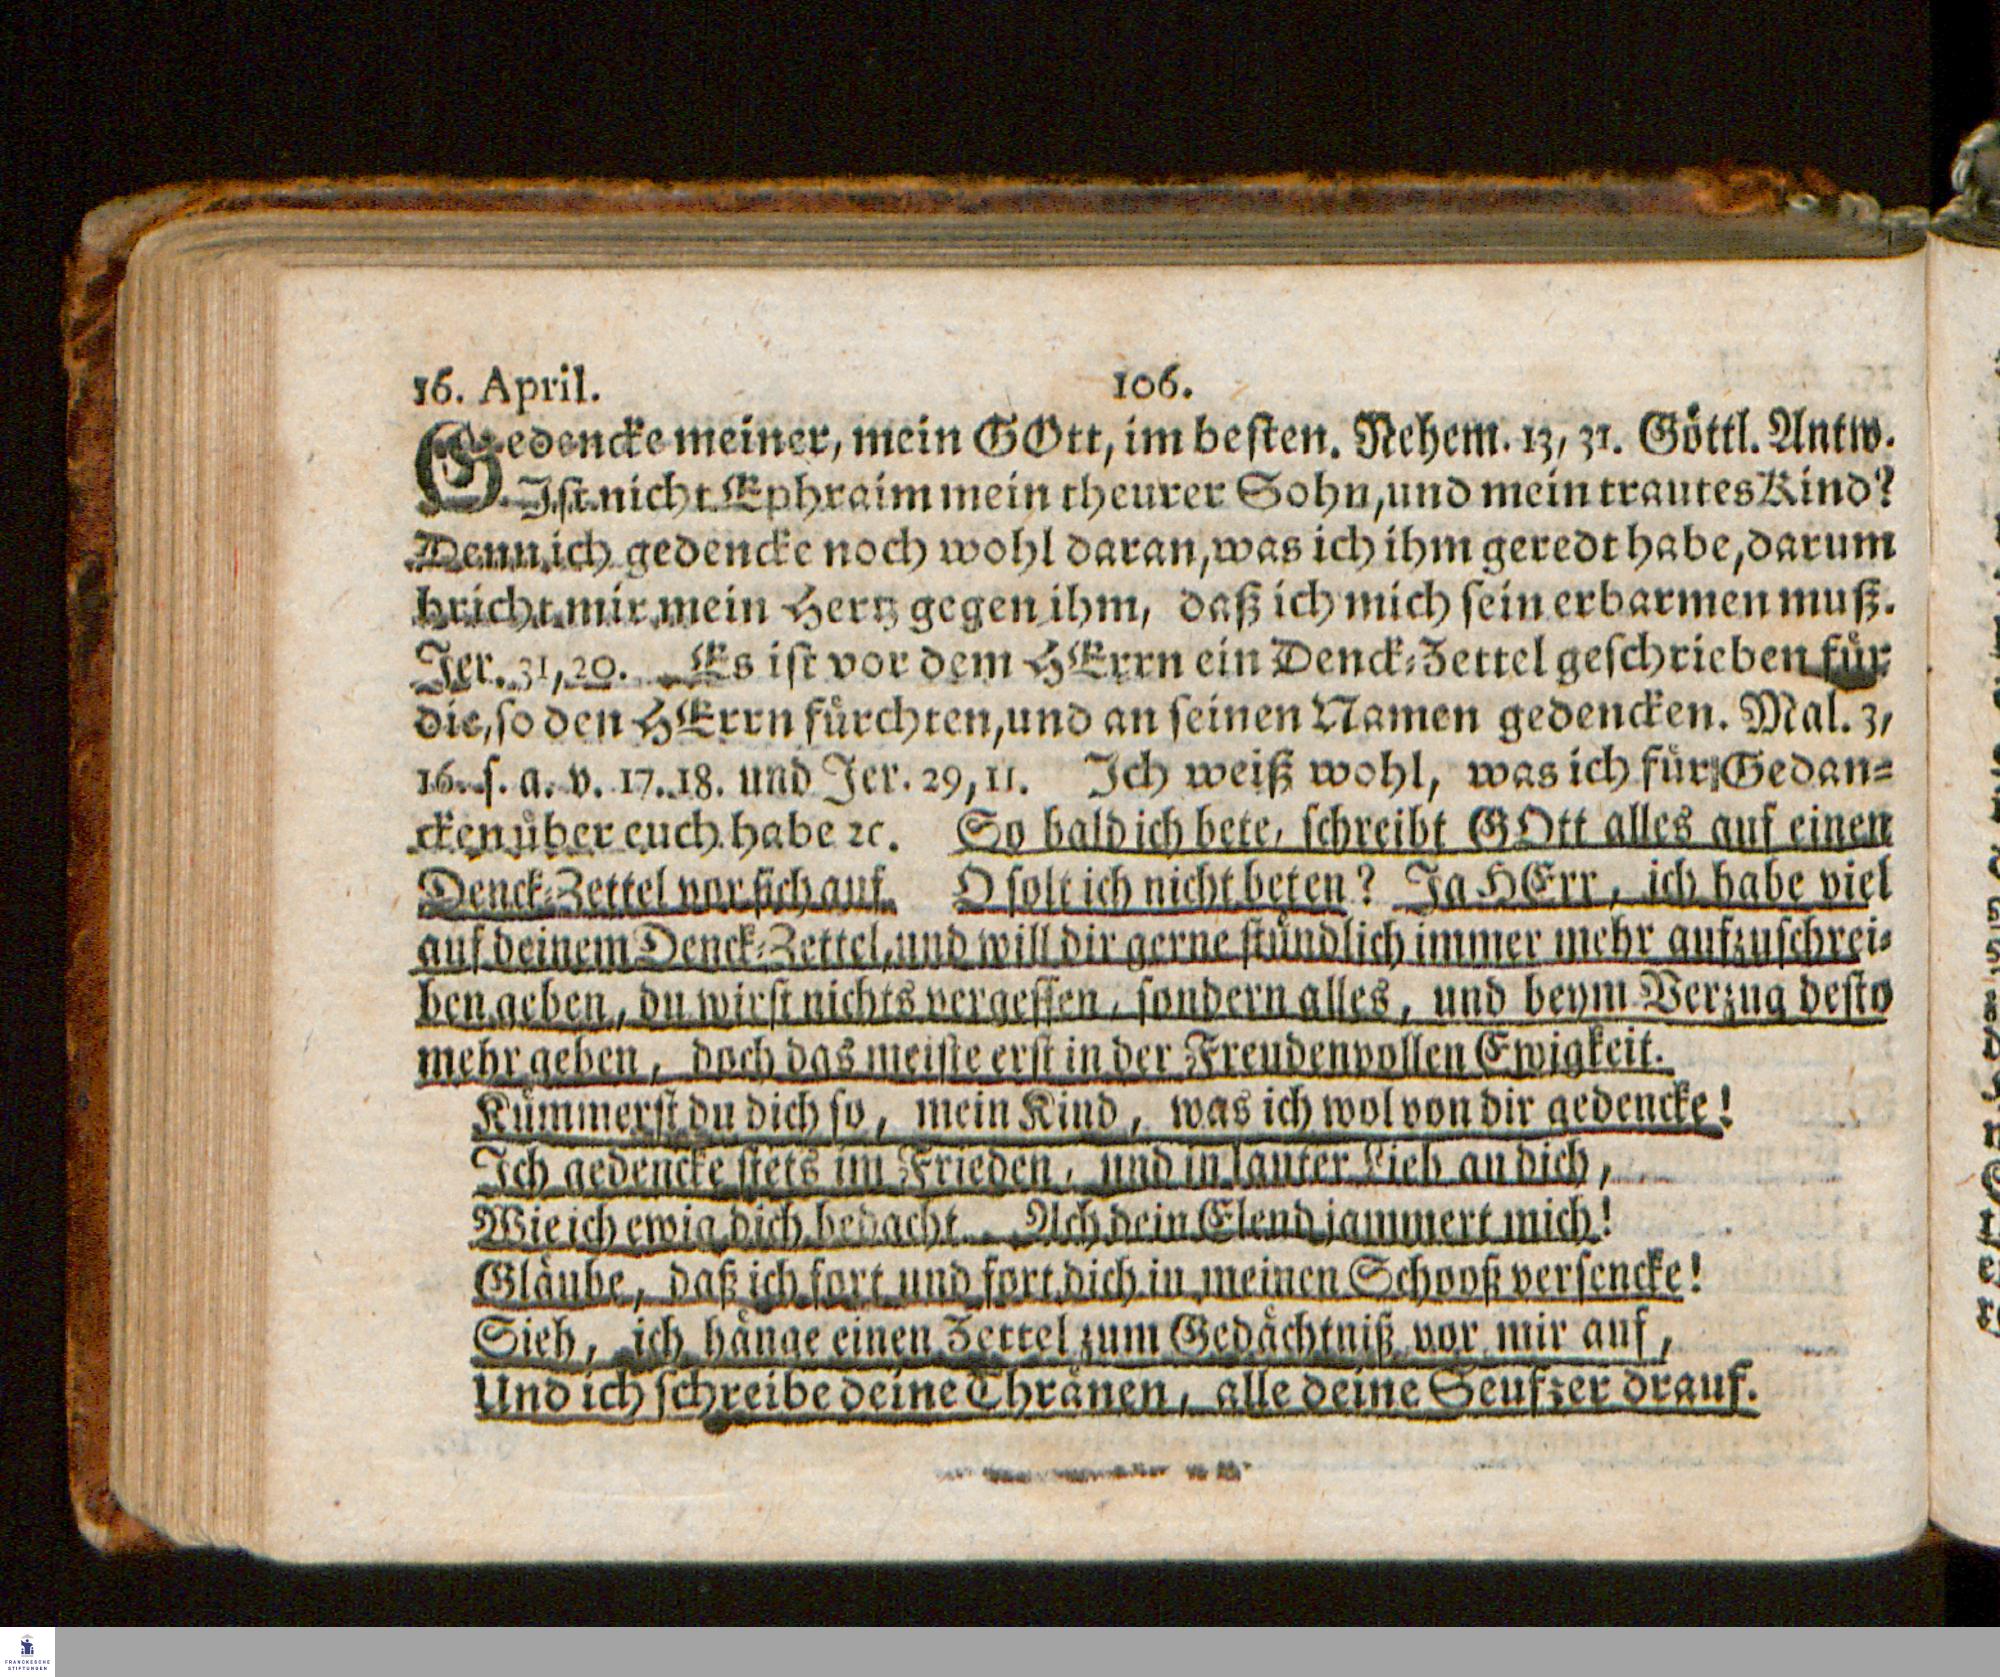 16. April. 106.
Gedencke meiner, mein GOtt, im besten. Nehem. 13, 31. Göttl. Antw.
Ist nicht Ephraim mein theurer Sohn, und mein trautes Kind?
Denn ich gedencke noch wohl daran, was ich ihm geredt habe, darum
bricht mir mein Hertz gegen ihm, daß ich mich sein erbarmen muß.
Jer. 31, 20. Es ist vor dem HErrn ein Denck-Zettel geschrieben für
die, so den HErrn fürchten, und an seinen Namen gedencken. Mal. 3,
16. s. a. v. 17. 18. und Jer. 29, 11. Ich weiß wohl, was ich für Gedan-
cken über euch habe ꝛc. So bald ich bete, schreibt GOtt alles auf einen
Denck-Zettel vor sich auf. O solt ich nicht beten? Ja HErr, ich habe viel
auf deinem Denck-Zettel, und will dir gerne stündlich immer mehr aufzuschrei-
ben geben, du wirst nichts vergessen, sondern alles, und beym Verzug desto
mehr geben, doch das meiste erst in der Freudenvollen Ewigkeit.
Kümmerst du dich so, mein Kind, was ich wol von dir gedencke!
Ich gedencke stets im Frieden, und in lauter Lieb an dich,
Wie ich ewig dich bedacht. Ach dein Elend jammert mich!
Gläube, daß ich fort und fort dich in meinen Schooß versencke!
Sieh, ich hänge einen Zettel zum Gedächtniß vor mir auf,
Und ich schreibe deine Thränen, alle deine Seufzer drauf.
FRANCKESCHE
STIFTUNGEN